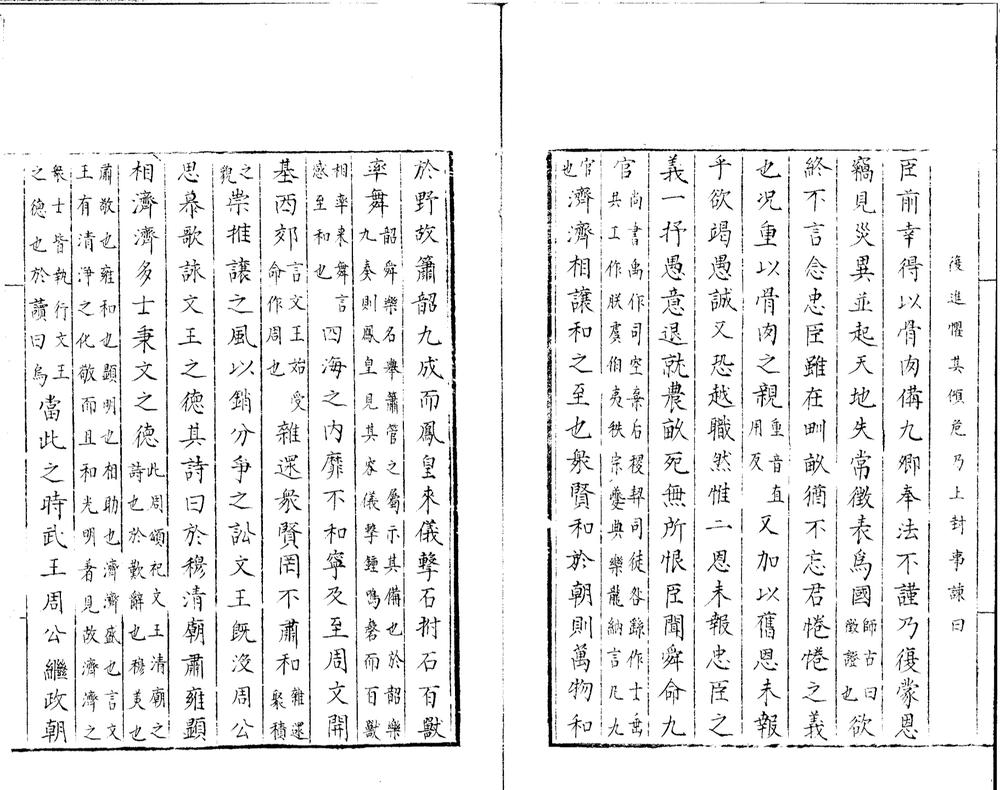 後進懼其傾危乃上封事諫曰
臣前幸得以骨肉備九卿奉法不謹乃復蒙恩
竊見災異並起天地失常徵表爲國師古曰徵證也欲
終不言念忠臣雖在甽畝猶不忘君惓惓之義
也况重以骨肉之親重音直用反又加以舊恩未報
乎欲竭愚誠又恐越職然惟二恩未報忠臣之
義一抒愚意退就農畝死無所恨臣聞舜命九
官尚書禹作司空棄后稷契司徒咎繇作士垂共工作朕虞伯夷秩宗夔典樂龍納言凡九
官也濟濟相讓和之至也衆賢和於朝則萬物和
於野故簫韶九成而鳳皇來儀擊石拊石百獸
率舞韶舜樂名舉簫管之屬示其備也於韶樂九奏則鳳皇見其容儀擊鍾鳴磬而百獸
相率來舞言感至和也四海之內靡不和寧及至周文開
基西郊言文王始受命作周也雜遝衆賢罔不肅和雜遝聚積
之貌崇推讓之風以銷分爭之訟文王既沒周公
思慕歌詠文王之德其詩曰於穆清廟肅雍顯
相濟濟多士秉文之德此周頌祀文王清廟之詩也於歎辭也穆美也
肅敬也雍和也顯明也相助也濟濟盛也言文王有清浄之化敬而且和光明著見故濟濟之
衆士皆執行文王之德也於讀曰烏當此之時武王周公繼政朝